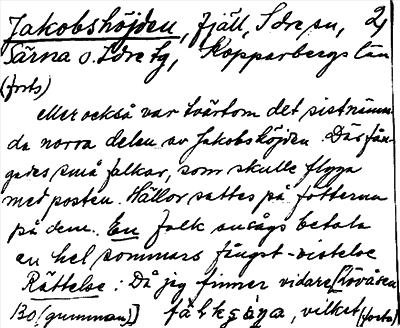 Jakobshöjden, fjäll, Idre sn, 2,
Särna o. Idre tg, Kopparbergs län
(forts)
eller också var tvärtom det sistnämn-
da norra delen av Jakobshöjden. Där fån-
gades små falkar, som skulle flyga
med posten. Hällor sattes på fötterna
på dem. En falk ansågs betala
en hel sommars fångst-vistelse
Rättelse: Då jag finner vidare [
Bo (gumman)] vilket (forts)